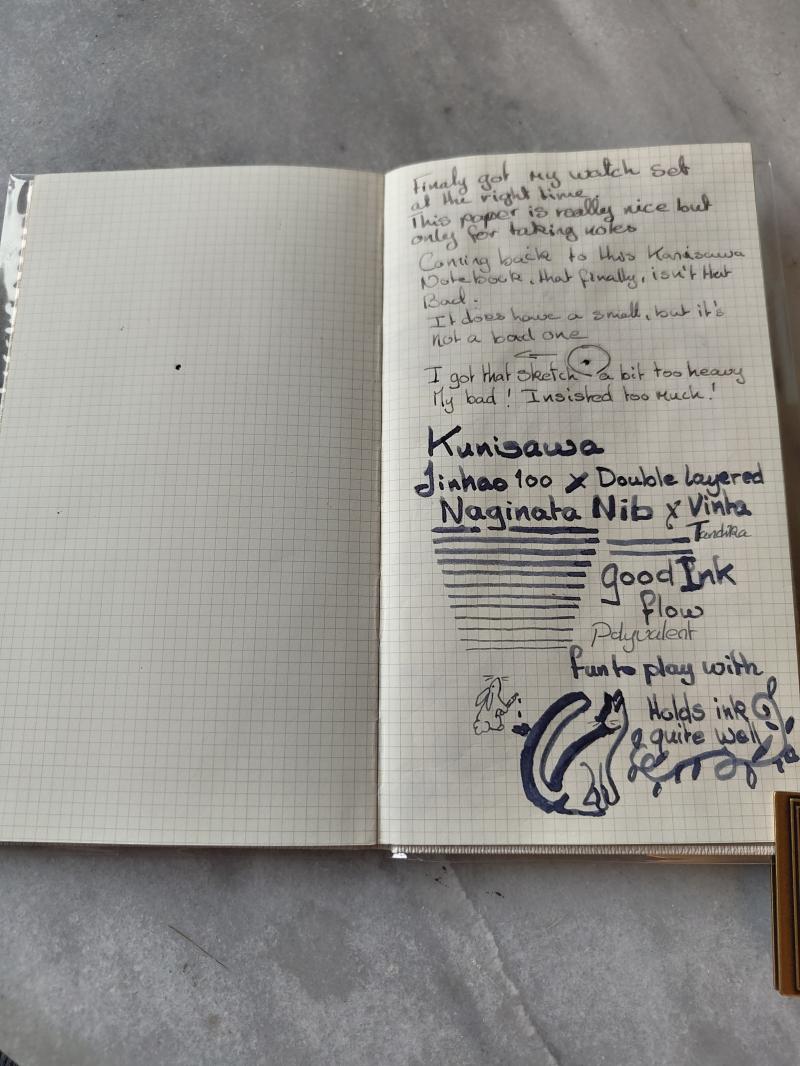 Finaly got my watch set
at the right time.
This paper is really nice but
only for taking notes
Coming back to this Kanisawa
Notebook, that finally, isn't that
Bad.
It does have a small, but it's
not a bad one
I got that sketch a bit too heavy
My bad! Insisted too much!
Kunisawa
Jinhao 100 x Double layered
Naginata Nib x Vinta
good Ink
flow
Polyvalent
fun to play with
Holds ink
quite well